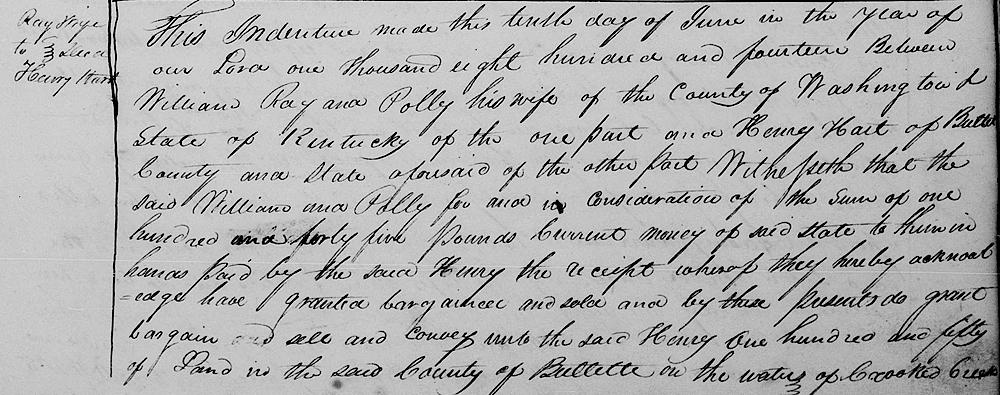 Ray & Wife
to } Deed
Henry Hart
This Indenture made this tenth day of June in the year of
our Lord one thousand eight hundred and fourteen Between
William Ray and Polly his wife of the County of Washington &
State of Kentucky of the one part and Henry Hart of Bullet
County and State aforsaid of the other part Witnesseth that the
said William and Polly for and in consideration of the Sum of one
hundred and forty five pounds Current money of said State to them in
hand paid by the said Henry the receipt wherof they hereby acknowl
=edge have granted bargained and sold and by these presents do grant
bargain and sell and convey unto the said Henry One hundred and fifty
of Land in the said County of Bullette on the waters of Crooked Creek